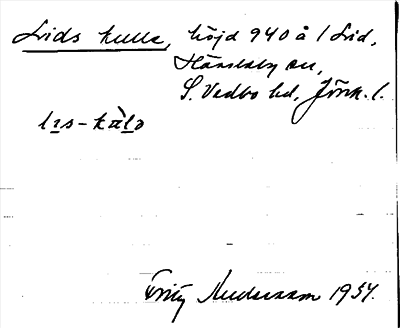 Lids kulle, höjd 940 å 1 Lid,
Hässleby sn,
S. Vedbo hd, Jönk. l.
lɪs-kùlə
Fritz Andersson 1934.